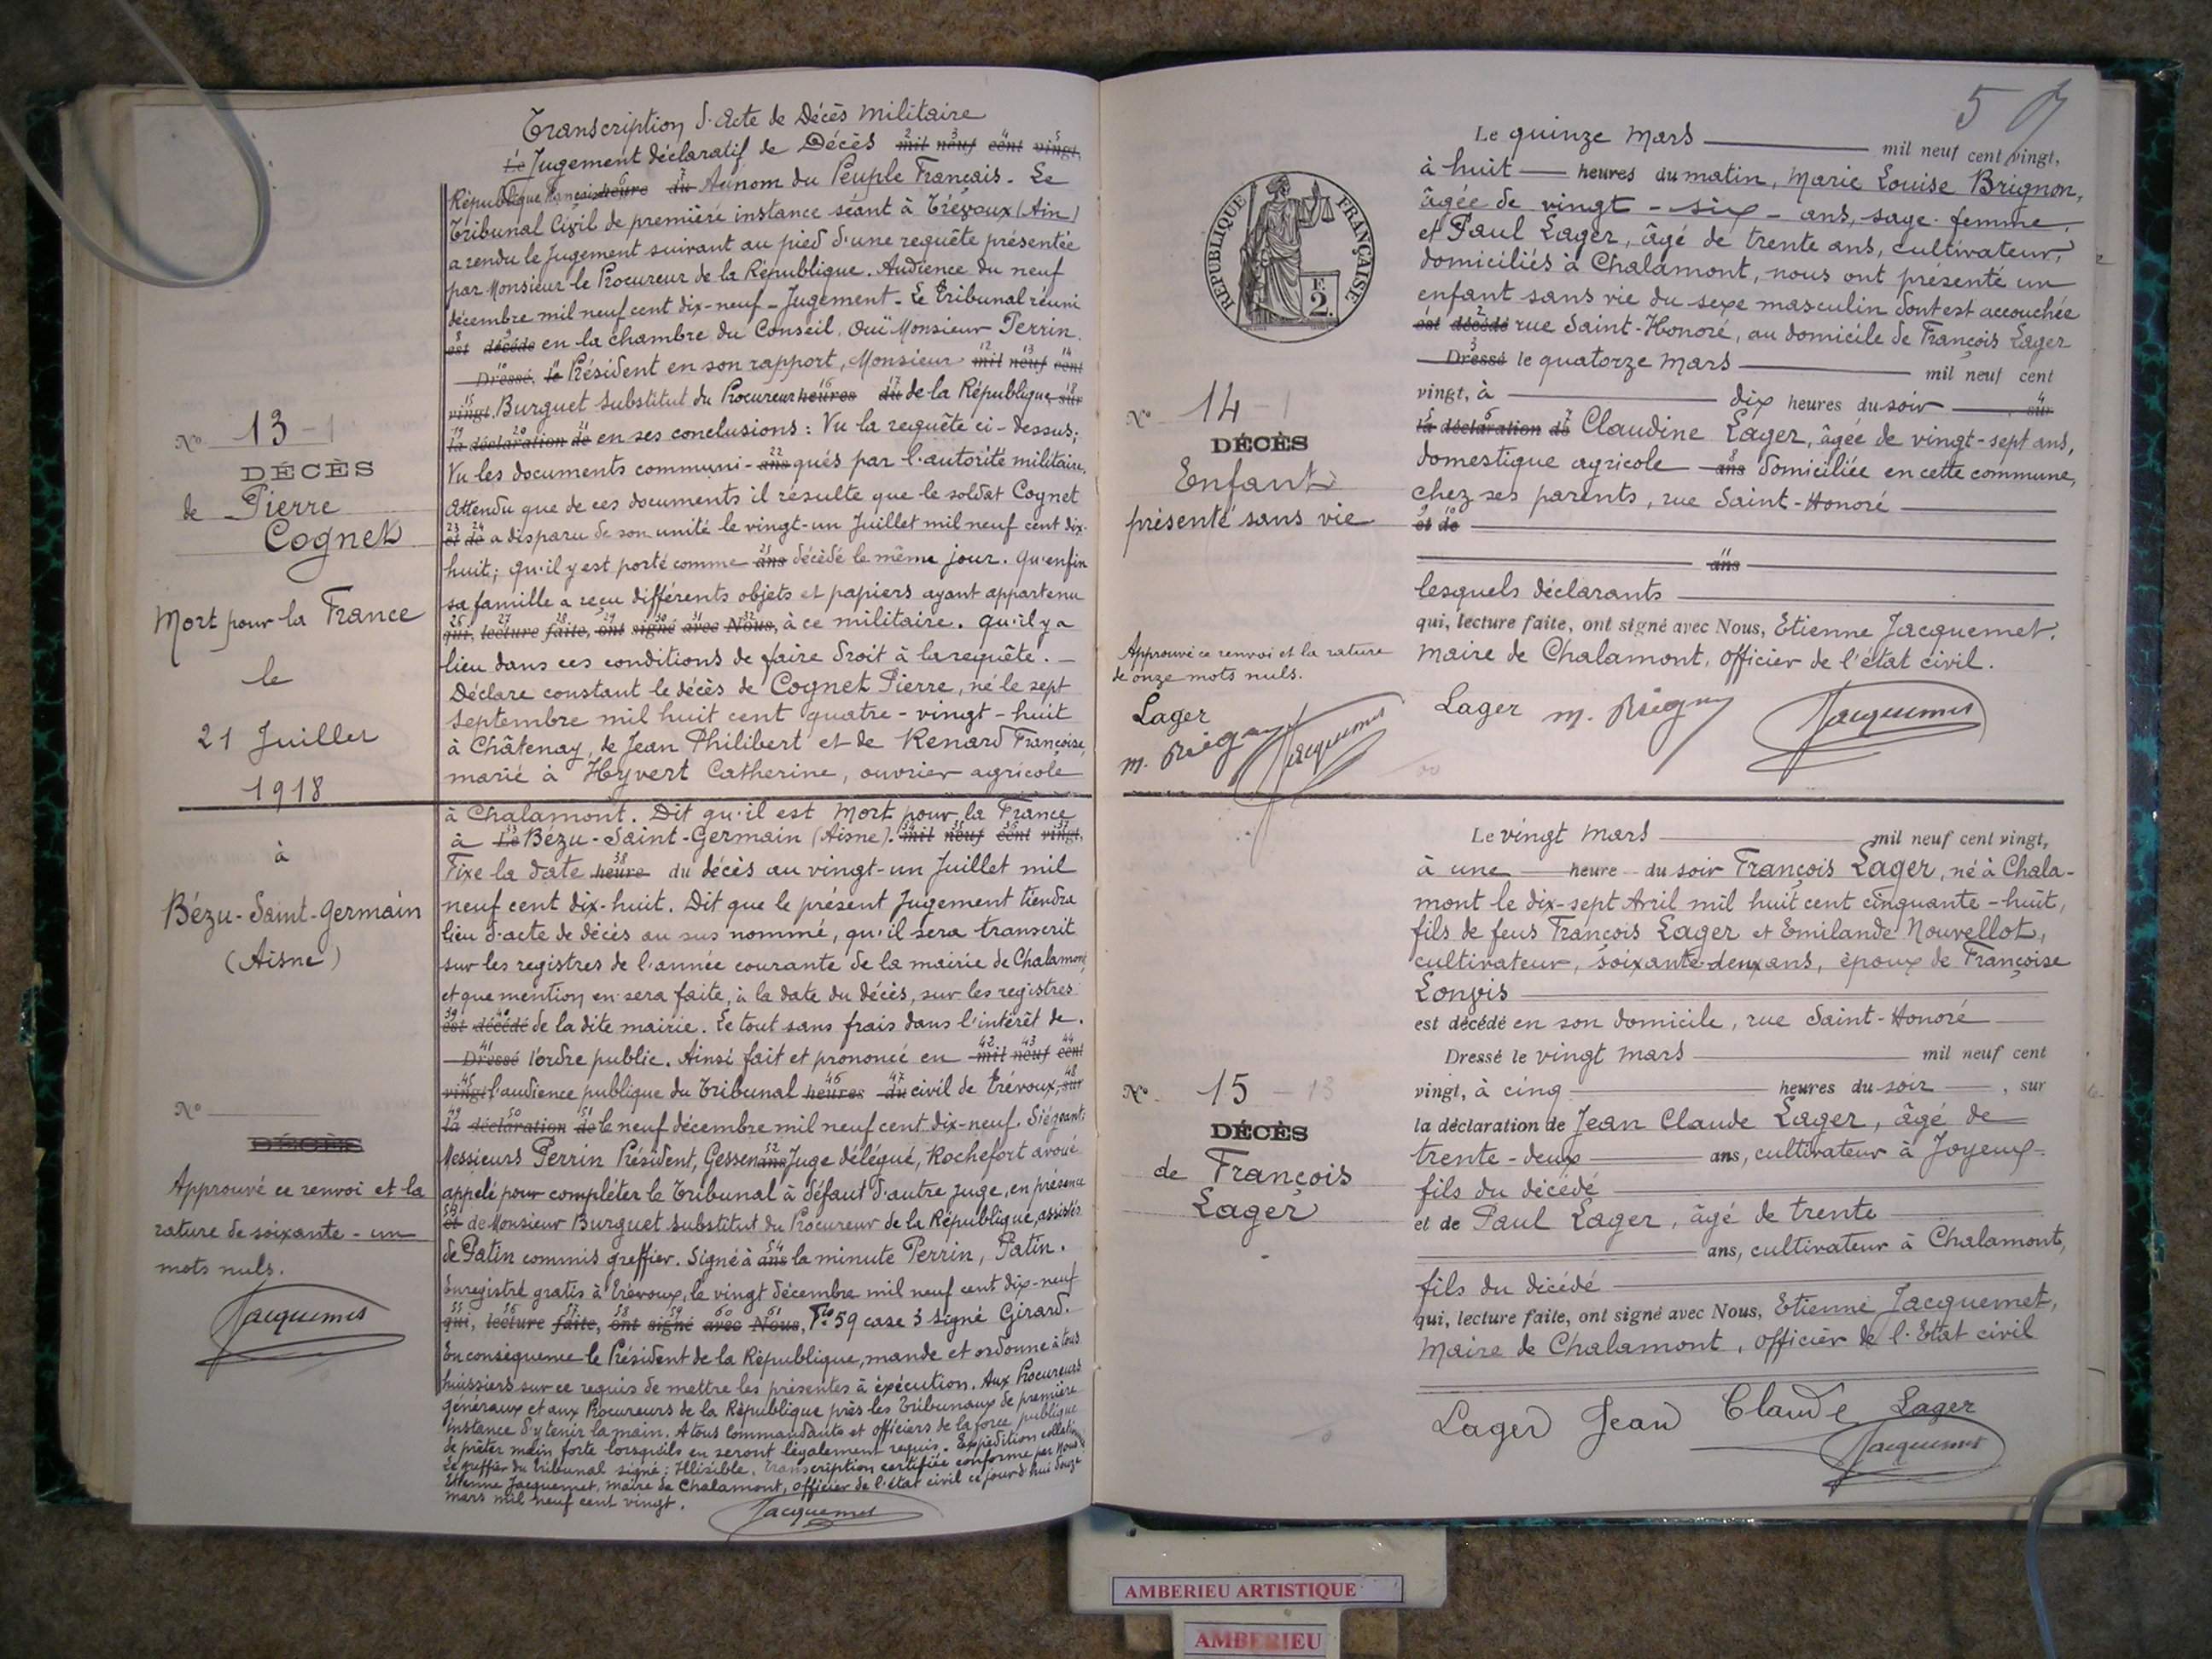 Transcription d'Acte de Décès militaire
Le Jugement déclaratif de Décès mil neuf cent vingt,
République Française heure du Au nom du Peuple Français. Le
Tribunal Civil de première instance séant à Trévoux (Ain)
a rendu le Jugement suivant au pied d'une requête présentée
par Monsieur le Procureur de la République. Audience du neuf
décembre mil neuf cent dix-neuf - Jugement - Le Tribunal réuni
est décédé en la chambre du Conseil, Ouï Monsieur Perrin
Dressé, le Président en son rapport, Monsieur mil neuf cent
vingt, Burguet substitut du Procureur heures du de la République sur
la déclaration de en ses conclusions : Vu la requête ci-dessus;
Vu les documents communi- ans qués par l'autorité militaire.
Attendu que de ces documents il résulte que le soldat Cognet
et de a disparu de son unité le vingt-un Juillet mil neuf cent dix-
huit; qu'il y est porté comme ans décédé le même jour. qu'enfin
sa famille a reçu différents objets et papiers ayant appartenu
qui, lecture faite, ont signé avec Nous, à ce militaire. qu'il y a
lieu dans ces conditions de faire droit à la requête. -
Déclare constant le décès de Cognet Pierre, né le sept
septembre mil huit cent quatre-vingt-huit
à Châtenay, de Jean Philibert et de Renard Françoise,
marié à Hyvert Catherine, ouvrier agricole
à Chalamont. Dit qu'il est Mort pour la France
à Le Bézu-Saint-Germain (Aisne). mil neuf cent vingt,
Fixe la date heure du décès au vingt-un Juillet mil
neuf cent dix-huit. Dit que le présent Jugement tiendra
lieu d'acte de décès au sus nommé, qu'il sera transcrit
sur les registres de l'année courante de la mairie de Chalamont
et que mention en sera faite, à la date du décès, sur les registres
est décédé de la dite mairie. Le tout sans frais dans l'intérêt de
Dressé l'ordre public. Ainsi fait et prononcé en mil neuf cent
vingt l'audience publique du Tribunal heures du civil de Trévoux, sur
la déclaration de le neuf décembre mil neuf cent dix-neuf. Siégeant:
Messieurs Perrin Président, Gessen ans Juge délégué, Rochefort avoué
appelé pour compléter le Tribunal à défaut d'autre juge, en présence
et de Monsieur Burguet substitut du Procureur de la République, assistés
de Patin commis greffier. Signé à ans la minute Perrin, Patin.
Enregistré gratis à Trévoux, le vingt décembre mil neuf cent dix-neuf
qui, lecture faite, ont signé avec Nous, Fo 59 case 3 Signé Girard.
En conséquence le Président de la République, mande et ordonne à tous
huissiers sur ce requis de mettre les présentes à exécution. Aux Procureurs
généraux et aux Procureurs de la République près les Tribunaux de première
instance d'y tenir la main. A tous Commandants et officiers de la force publique
de prêter main forte lorsqu'ils en seront légalement requis. Expédition
Le greffier du Tribunal signé : Illisible. Transcription certifiée conforme par Nous
Etienne Jacquemet, maire de Chalamont, officier de l'état civil ce jourd'hui douze
mars mil neuf cent vingt.
Jacquemet
No 13
DÉCÈS
de Pierre
Cognet
Mort pour la France
le
21 Juillet
1918
à
Bézu-Saint-Germain
(Aisne)
No
DÉCÈS
Approuvé ce renvoi et la
rature de soixante-un
mots nuls.
Jacquemet
5
RÉPUBLIQUE FRANÇAISE
F.
2.
Le quinze Mars mil neuf cent vingt,
à huit heures du matin, Marie Louise Brignon,
âgée de vingt-six ans, sage-femme
et Paul Lager, âgé de trente ans, cultivateur,
domiciliés à Chalamont, nous ont présenté un
enfant sans vie du sexe masculin dont est accouchée
est décédé rue Saint-Honoré, au domicile de François Lager
Dressé le quatorze Mars mil neuf cent
vingt, à dix heures du soir sur
la déclaration de Claudine Lager, âgée de vingt-sept ans,
domestique agricole ans domiciliée en cette commune,
chez ses parents, rue Saint-Honoré
et de
ans
lesquels déclarants
qui, lecture faite, ont signé avec Nous, Etienne Jacquemet,
maire de Chalamont, officier de l'état civil.
Lager M. Brignon Jacquemet
No 14
DÉCÈS
Enfant
présenté sans vie
Approuvé ce renvoi et la rature
de onze mots nuls.
Lager
M. Brignon Jacquemet
Le vingt Mars mil neuf cent vingt,
à une heure du soir François Lager, né à Chala-
mont le dix-sept Avril mil huit cent cinquante-huit,
fils de feus François Lager et Emilande Nouvellot,
cultivateur, soixante-deux ans, époux de Françoise
Lonvis
est décédé en son domicile, rue Saint-Honoré
Dressé le vingt mars mil neuf cent
vingt, à cinq heures du soir, sur
la déclaration de Jean Claude Lager, âgé de
trente-deux ans, cultivateur à Joyeux
fils du décédé
et de Paul Lager, âgé de trente
ans, cultivateur à Chalamont,
fils du décédé
qui, lecture faite, ont signé avec Nous, Etienne Jacquemet,
Maire de Chalamont, officier de l'Etat civil
Lager Jean Claude Lager
Jacquemet
No 15
DÉCÈS
de François
Lager
AMBERIEU ARTISTIQUE
AMBERIEU